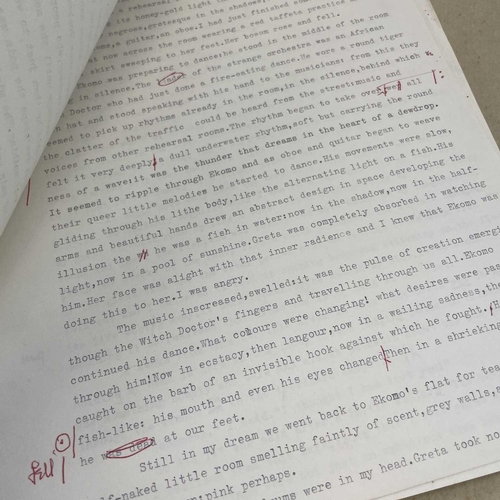 its honey-gold light th
negroes, grotesque in the shadow,
a guitar, an oboe. I had just finished som
now across the room wearing a red taffeta practice
skirt sweeping to her feet. Her bosom rose and fell.
Ekomo was preparing to dance; he stood in the middle of the room
in silence. The leader of the strange orchestra was an African
Doctor who had just done a fire-eating dance. He wore a round tiger
hat and stood speaking with his hand to the musicians: from this they
seemed to pick up rhythms already in the room, in the silence, behind which
the clatter of the traffic could be heard from the street: music and
voices from other rehearsal rooms. The rhythm began to take over all
felt it very deeply a dull underwater rhythm, soft but carrying the round
ness of a wave: it was the thunder that dreams in the heart of a dewdrop.
It seemed to ripple through Ekomo and as oboe and guitar began to weave
their queer little melodies he started to dance. His movements were slow,
gliding through his lithe body, like the alternating light on a fish. His
arms and beautiful hands drew an abstract design in space developing the
illusion the he was a fish in water: now in the shadow, now in the half-
light, now in a pool of sunshine. Greta was completely absorbed in watching
him. Her face was alight with that inner radience and I knew that Ekomo was
doing this to her. I was angry.
The music inscreased, swelled: it was the pulse of creation emergi
though the Witch Doctor's fingers and travelling through us all. Ekomo
continued his dance. What colours were changing! what desires were pa
through him! Now in ecstacy, then langour, now in a wailing sadness, the
caught on the barb of an invisible hook against which he fought. H
fish-like: his mouth and even his eyes changed Then in a shriekin
he was dead at our feet.
fell
Still in my dream we went back to Ekomo's flat for tea
lf-naked little room smelling faintly of scent, grey walls,
pink perhaps.
ums were in my head. Greta took no